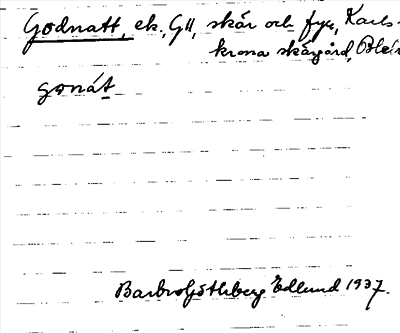 Godnatt, ek. GII, skär och fyr, Karls-
krona skärgård, Blek
gonát
Barbro Götlberg Edlund 1937.